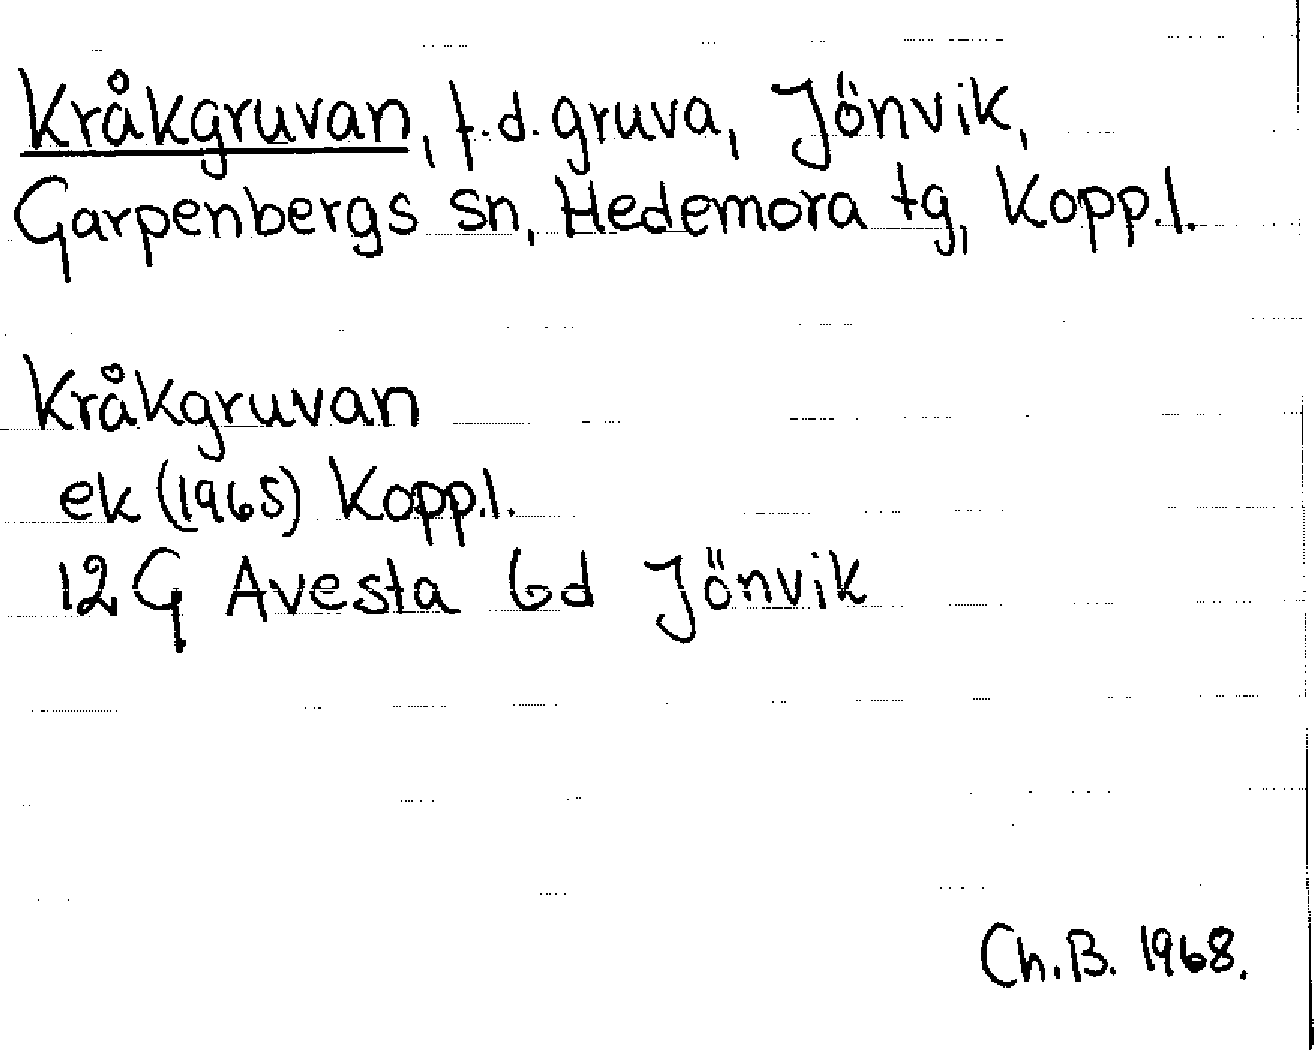 Kråkgruvan, f.d. gruva, Jönvik,
Garpenbergs sn, Hedemora tg, Kopp.l.
Kråkgruvan
ek (1965) Kopp.l.
12G Avesta 6d Jönvik
Ch.B. 1968.